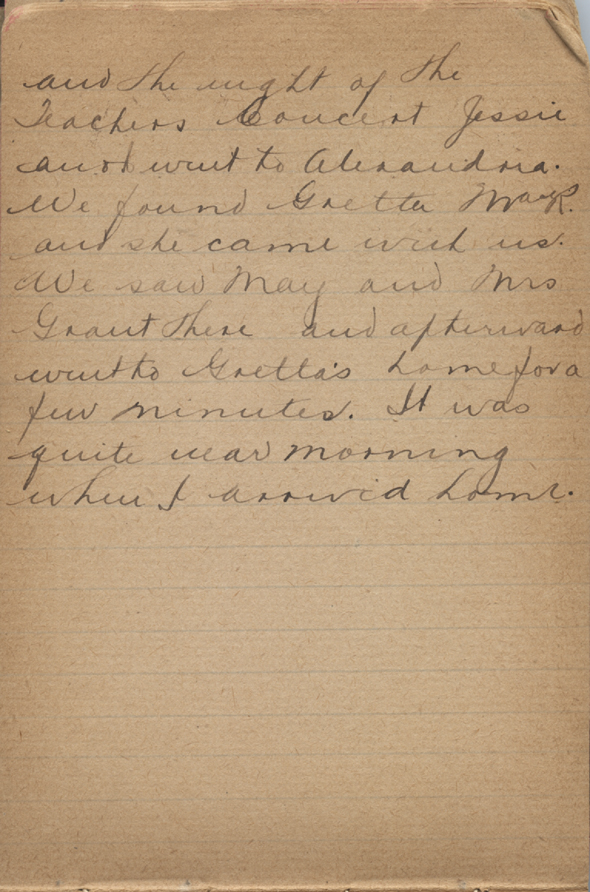 and the night of the
Teachers Concert Jessie
and I went to Alexandria.
We found Gretta
and she came with us.
We saw May and Mrs
Grant there and afterward
went to Gretta's home for a
few minutes. It was
quite near morning
when I arrived home.